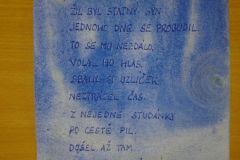 ŽIL BYL STATNÝ SYN
JEDNOHO DNE SE PROBUDIL
TO SE MU NEZDÁLO,
VOLAL HO HLAS.
SBALIL SI UZLÍČEK
NEZTRÁCEL ČAS.
Z NEJEDNÉ STUDÁNKY
PO CESTĚ PIL.
DOŠEL AŽ TAM